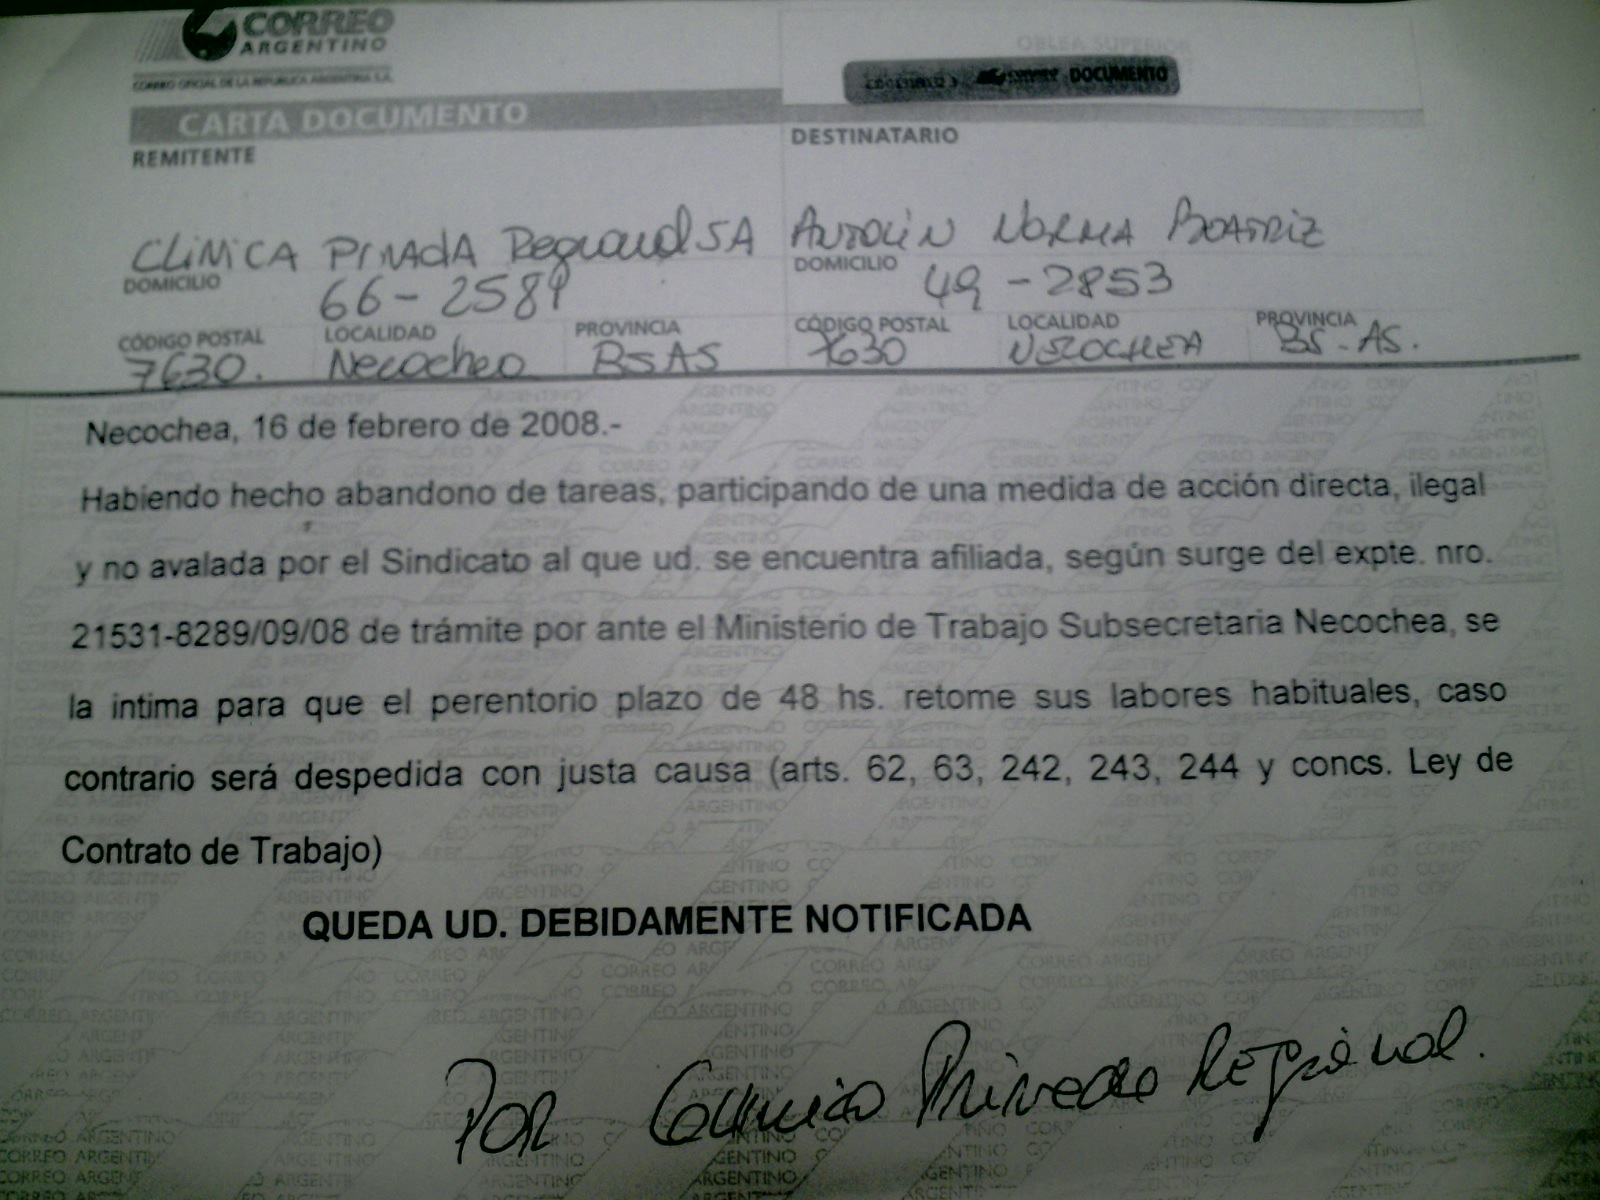 CORREO
ARGENTINO
CORREO OFICIAL DE LA REPUBLICA ARGENTINA S.A.
OBLEA SUPERIOR
DOCUMENTO
CARTA DOCUMENTO
REMITENTE
DESTINATARIO
CLINICA PRIVADA Regional SA
ANTOLIN NORMA BEATRIZ
DOMICILIO
66-2589
DOMICILIO
49-2853
CÓDIGO POSTAL
LOCALIDAD
PROVINCIA
CÓDIGO POSTAL
LOCALIDAD
PROVINCIA
7630.
Necochea
BSAS
7630
NECOCHEA
BS-AS.
Necochea, 16 de febrero de 2008.-
Habiendo hecho abandono de tareas, participando de una medida de acción directa, ilegal
y no avalada por el Sindicato al que ud. se encuentra afiliada, según surge del expte. nro.
21531-8289/09/08 de trámite por ante el Ministerio de Trabajo Subsecretaria Necochea, se
la intima para que el perentorio plazo de 48 hs. retome sus labores habituales, caso
contrario será despedida con justa causa (arts. 62, 63, 242, 243, 244 y concs. Ley de
Contrato de Trabajo)
QUEDA UD. DEBIDAMENTE NOTIFICADA
Por Clinica Privada Regional.